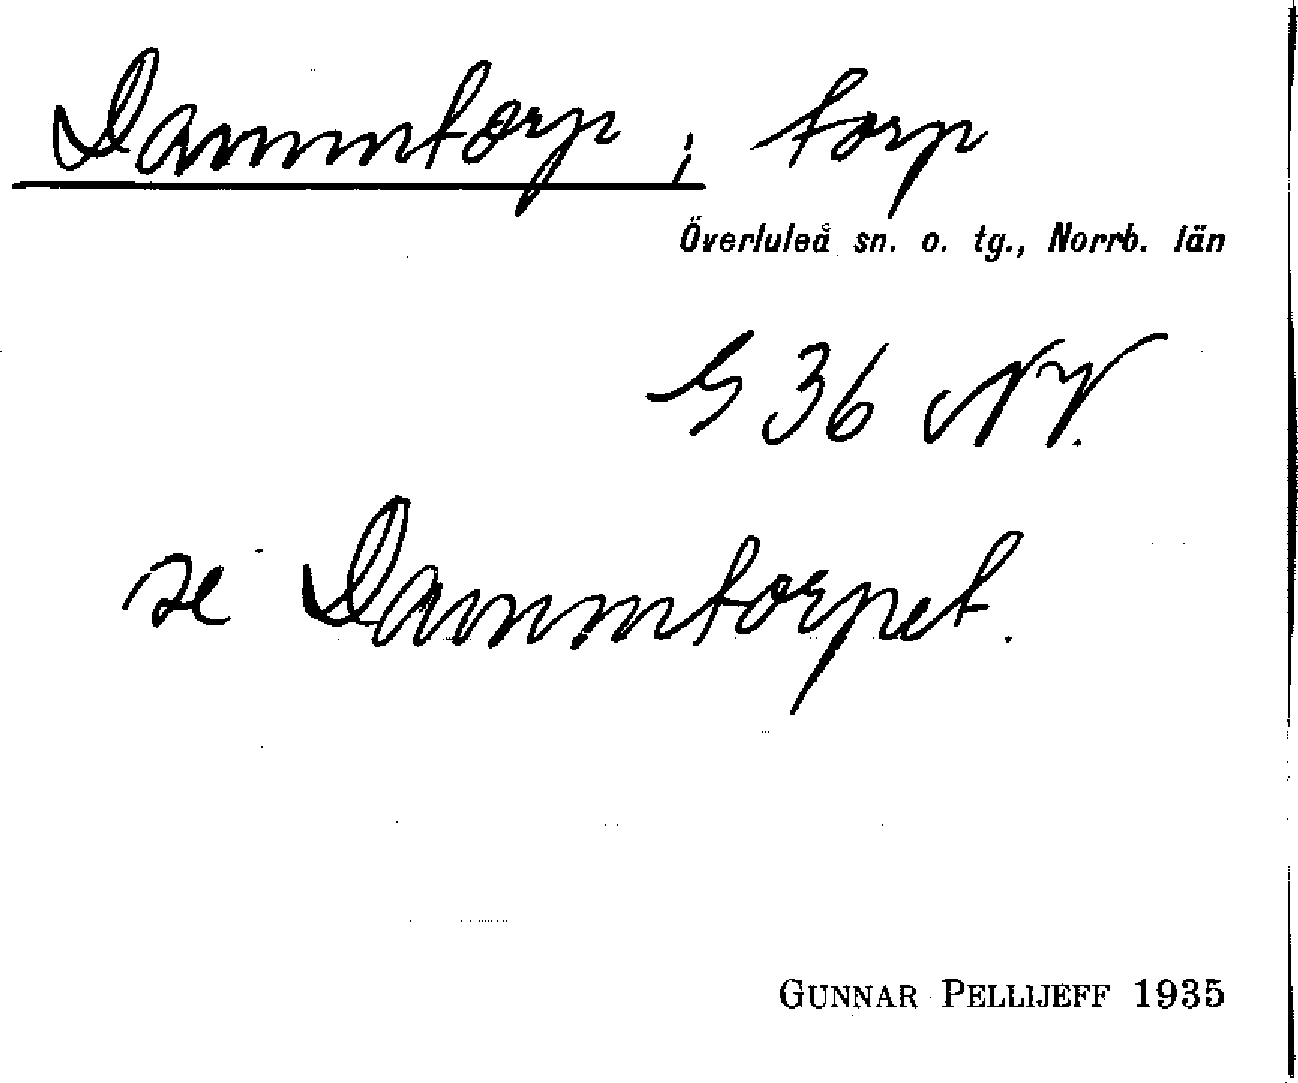 Dammtorp ; torp
Överluleå sn. o. tg., Norrb. län
S 36 NV.
se Dammtorpet.
GUNNAR PELLIJEFF 1935